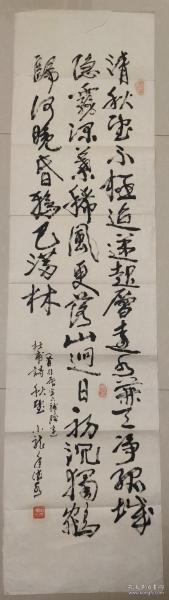 清秋望不極迢遞起層遠水兼天净孤城
隐霧深葉稀風更落山迥日初沉獨鶴
歸何晚昏鴉已滿林
杜甫詩秋望 小龍